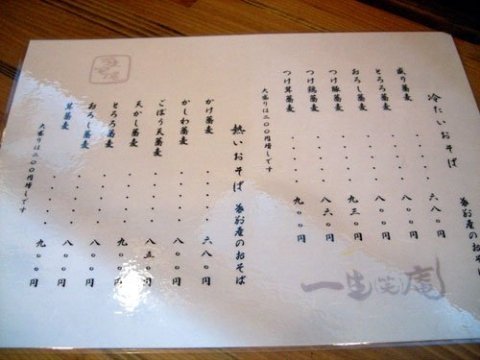 冷たいおそば
盛り蕎麦・・・・六八〇円
とろろ蕎麦・・・・八〇〇円
おろし蕎麦・・・・八〇〇円
つけ豚蕎麦・・・・九三〇円
つけ鶏蕎麦・・・・八六〇円
つけ茸蕎麦・・・・九〇〇円
大盛りは二〇〇円増しです
熱いおそば
かけ蕎麦・・・・六八〇円
かしわ蕎麦・・・・八〇〇円
ごぼう天蕎麦・・・・八五〇円
天かし蕎麦・・・・九〇〇円
とろろ蕎麦・・・・八〇〇円
おろし蕎麦・・・・八〇〇円
茸蕎麦・・・・九〇〇円
大盛りは二〇〇円増しです
一生笑庵